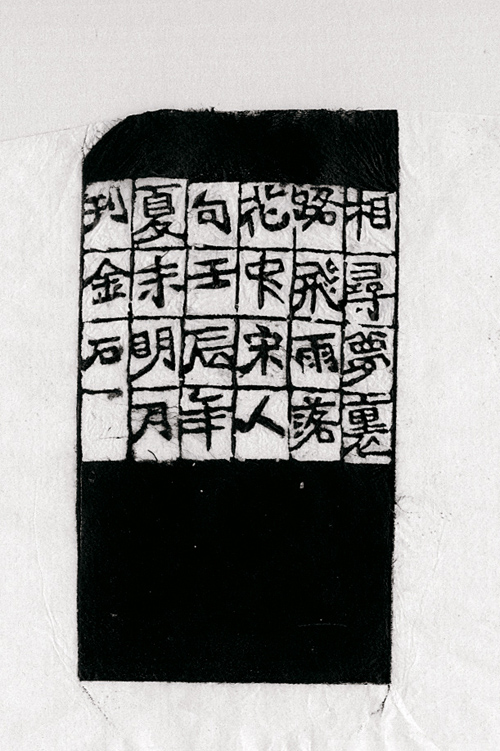 相尋夢裏
路飛雨落
花中宋人
句壬辰年
夏未明月
刊金石